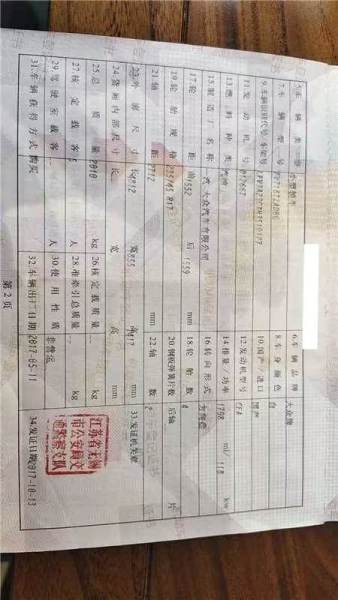 5.车辆类型 小型轿车
6.车辆品牌 大众牌
7.车辆型号
8.车身颜色 白
9.车辆识别代号/车架号
10.国产/进口 国产
11.发动机号
12.发动机型号
13.燃料种类 汽油
14.排量/功率 1798 ml/ 118 kw
15.制造厂名称 大众汽车有限公司
16.转向形式 方向盘
17.轮距 前1552 后1559 mm
18.轮胎数 4
19.轮胎规格
20.钢板弹簧片数 后轴 片
21.轴距 2712 mm
22.轴数 2
23.外廓尺寸 长4812 宽 高 mm
33.发证机关章
24.货厢内部尺寸 长 宽 高 mm
25.总质量 kg
26.核定载质量 kg
27.核定载客 5 人
28.准牵引总质量 kg
江苏省无锡
市公安局交
通警察支队
29.驾驶室载客 人
30.使用性质 非营运
31.车辆获得方式 购买
32.车辆出厂日期 2017-05-11
34.发证日期 2017-10-13
第2页